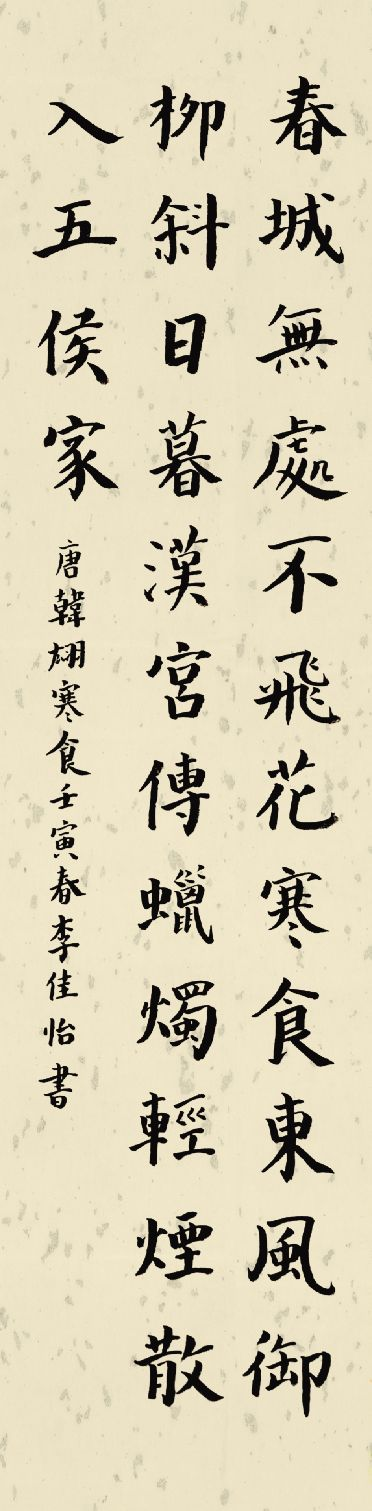 春城無處不飛花寒食東風御
柳斜日暮漢宮傳蠟燭輕煙散
入五侯家
唐韓翃寒食壬寅春李佳怡書